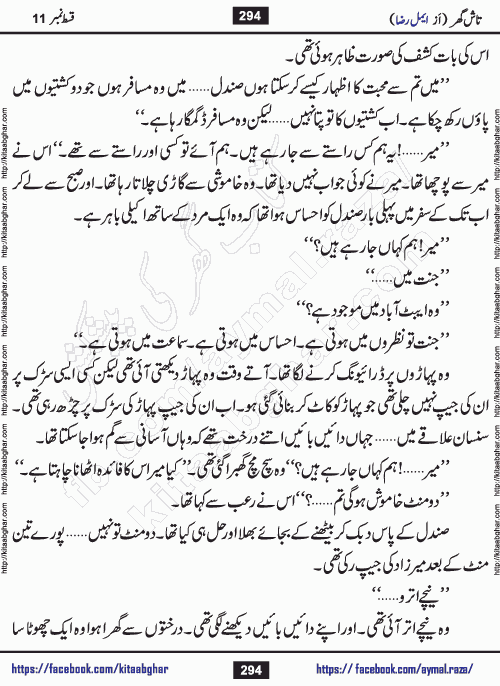 تاش گھر (از ایمل رضا)
294
قسط نمبر 11
اس کی بات کشف کی صورت ظاہر ہوئی تھی۔
’’میں تم سے محبت کا اظہار کیسے کر سکتا ہوں صندل...... میں وہ مسافر ہوں جو دو کشتیوں میں
پاؤں رکھ چکا ہے۔ اب کشتیوں کا تو پتا نہیں......لیکن وہ مسافر ڈگمگا رہا ہے۔‘‘
’’میر......! یہ ہم کس راستے سے جا رہے ہیں۔ ہم آئے تو کسی اور راستے سے تھے۔‘‘ اس نے
میر سے پوچھا تھا۔ میر نے کوئی جواب نہیں دیا تھا۔ وہ خاموشی سے گاڑی چلاتا رہا تھا۔ اور صبح سے لے کر
اب تک کے سفر میں پہلی بار صندل کو احساس ہوا تھا کہ وہ ایک مرد کے ساتھ اکیلی باہر ہے۔
’’میر! ہم کہاں جا رہے ہیں؟‘‘
’’جنت میں......‘‘
’’وہ ایبٹ آباد میں موجود ہے؟‘‘
’’جنت تو نظروں میں ہوتی ہے۔ احساس میں ہوتی ہے۔ سماعت میں ہوتی ہے۔‘‘
وہ پہاڑوں پر ڈرائیونگ کرنے لگا تھا۔ آتے وقت وہ پہاڑ دیکھتی آئی تھی لیکن کسی ایسی سڑک پر
ان کی جیپ نہیں چلی تھی جو پہاڑ کو کاٹ کر بنائی گئی ہو۔ اب ان کی جیپ پہاڑ کی سڑک پر چڑھ رہی تھی۔
سنسان علاقے میں...... جہاں دائیں بائیں اتنے درخت تھے کہ وہاں آسانی سے گم ہوا جا سکتا تھا۔
’’میر......! ہم کہاں جا رہے ہیں؟‘‘ وہ سچ مچ گھبرا گئی تھی۔ ’’کیا میر اس کا فائدہ اٹھانا چاہتا ہے۔‘‘
’’دو منٹ خاموش ہو گی تم......؟‘‘ اس نے رعب سے کہا تھا۔
صندل کے پاس دبک کر بیٹھنے کے بجائے بھلا اور حل ہی کیا تھا۔ دو منٹ تو نہیں...... پورے تین
منٹ کے بعد میر زاد کی جیپ رکی تھی۔
’’نیچے اترو......‘‘
وہ نیچے اتر آئی تھی۔ اور اپنے دائیں بائیں دیکھنے لگی تھی۔ درختوں سے گھرا ہوا وہ ایک چھوٹا سا
https://facebook.com/kitaabghar
294
https://facebook.com/aymal.raza/
http://kitaabghar.com
http://kitaabghar.com
http://kitaabghar.com
http://kitaabghar.com
http://kitaabghar.com
http://kitaabghar.com